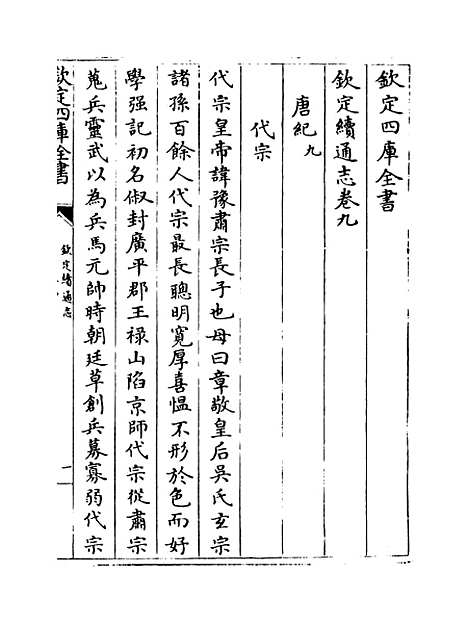 欽定四庫全書
欽定續通志卷九
唐紀九
代宗
代宗皇帝諱豫肅宗長子也母曰章敬皇后吳氏玄宗
諸孫百餘人代宗最長聰明寛厚喜愠不形於色而好
學强記初名俶封廣平郡王禄山陷京師代宗從肅宗
蒐兵靈武以為兵馬元帥時朝廷草創兵募寡弱代宗
欽定四庫全書
欽定續通志